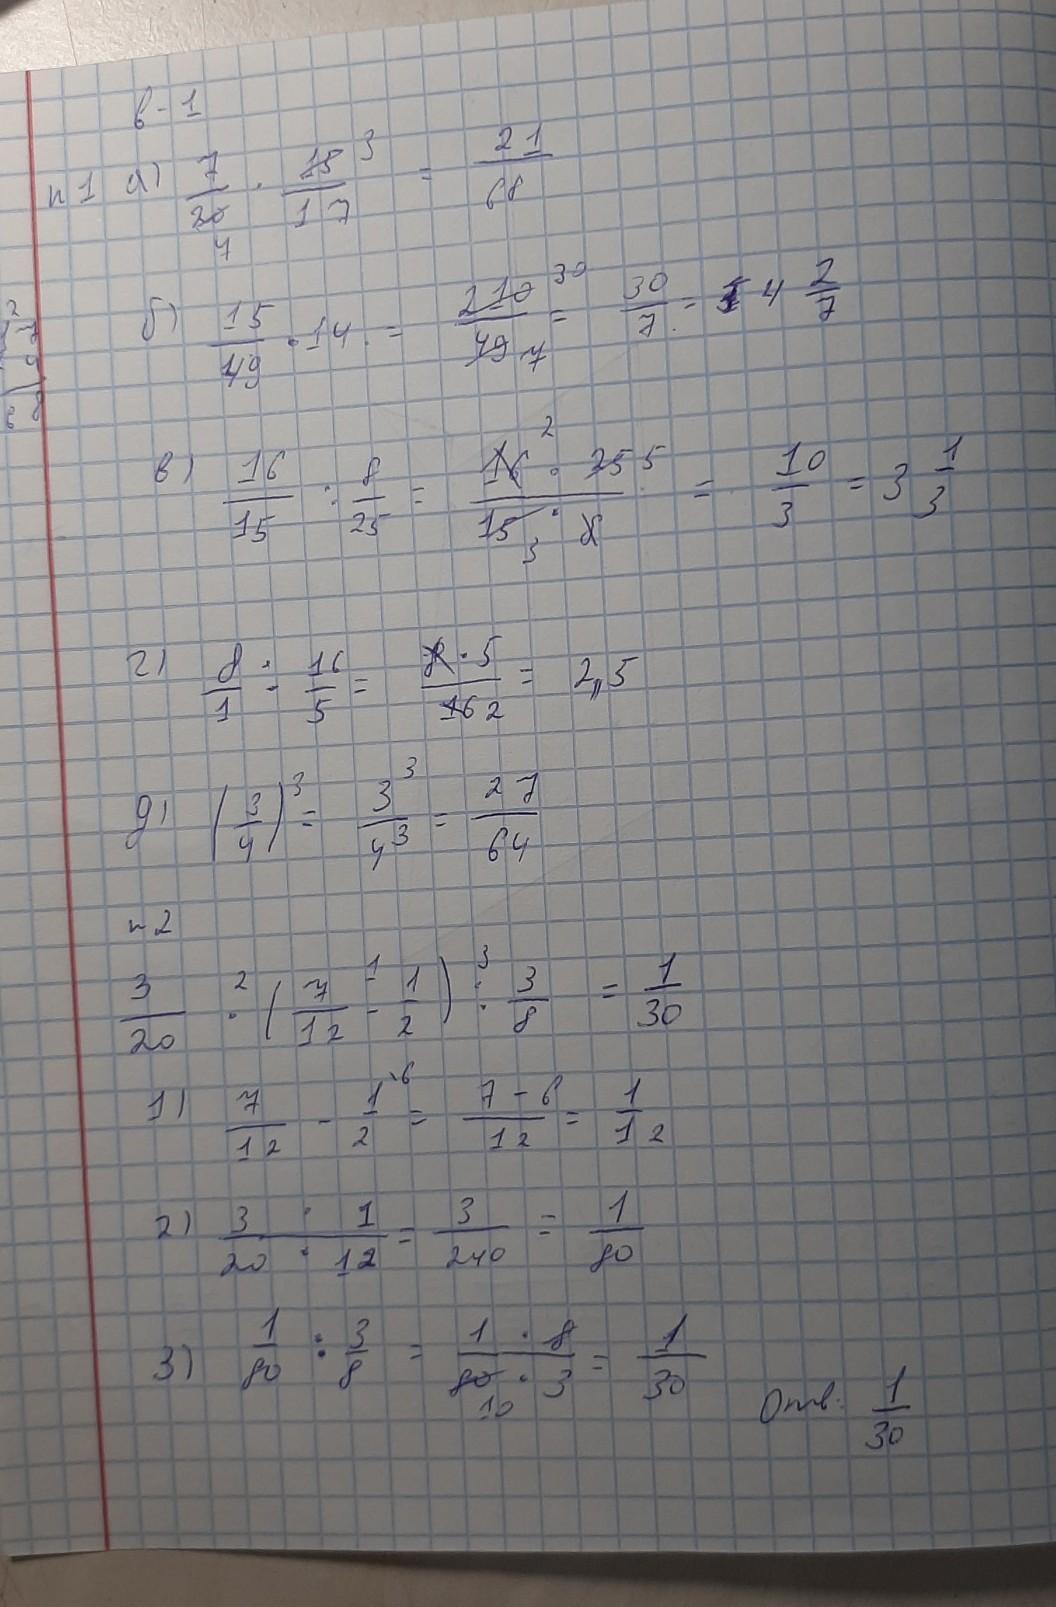 в-1
н1 а) 7/20 4 · 15/17 3 = 21/68
б) 15/49 · 14 = 210/49 30 7 = 30/7 = 4 2/7
в) 16/15 : 8/25 = 16 2 · 25 5 / 15 3 · 8 = 10/3 = 3 1/3
г) 8/1 : 16/5 = 8 · 5 / 16 2 = 2,5
д) (3/4)³ = 3³/4³ = 27/64
н2
3/20 ·² (7/12 -¹ 1/2) :³ 3/8 = 1/30
1) 7/12 - 1/2 ·6 = 7 - 6 / 12 = 1/12
2) 3 · 1 / 20 · 12 = 3/240 = 1/80
3) 1/80 : 3/8 = 1 · 8 / 80 10 · 3 = 1/30
Отв: 1/30